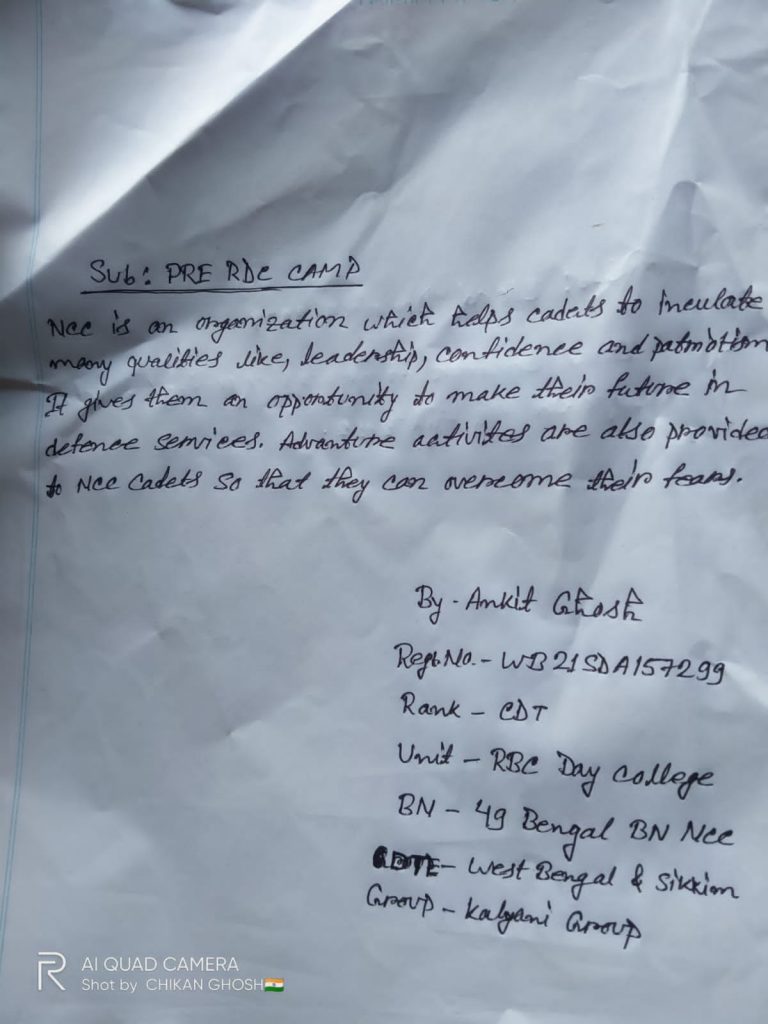 Sub: PRE RDC CAMP
Ncc is an organization which helps cadets to inculate
many qualities like, leadership, confidence and patriotism
It gives them an opportunity to make their future in
defence services. Advanture aativites are also provided
to Ncc Cadets so that they can overcome their fears.
By - Ankit Ghosh
Regt.No. - WB21SDA157299
Rank - CDT
Unit - RBC Day College
BN - 49 Bengal BN Ncc
DTE - West Bengal & Sikkim
Group - Kalyani Group
AI QUAD CAMERA
Shot by CHIKAN GHOSH